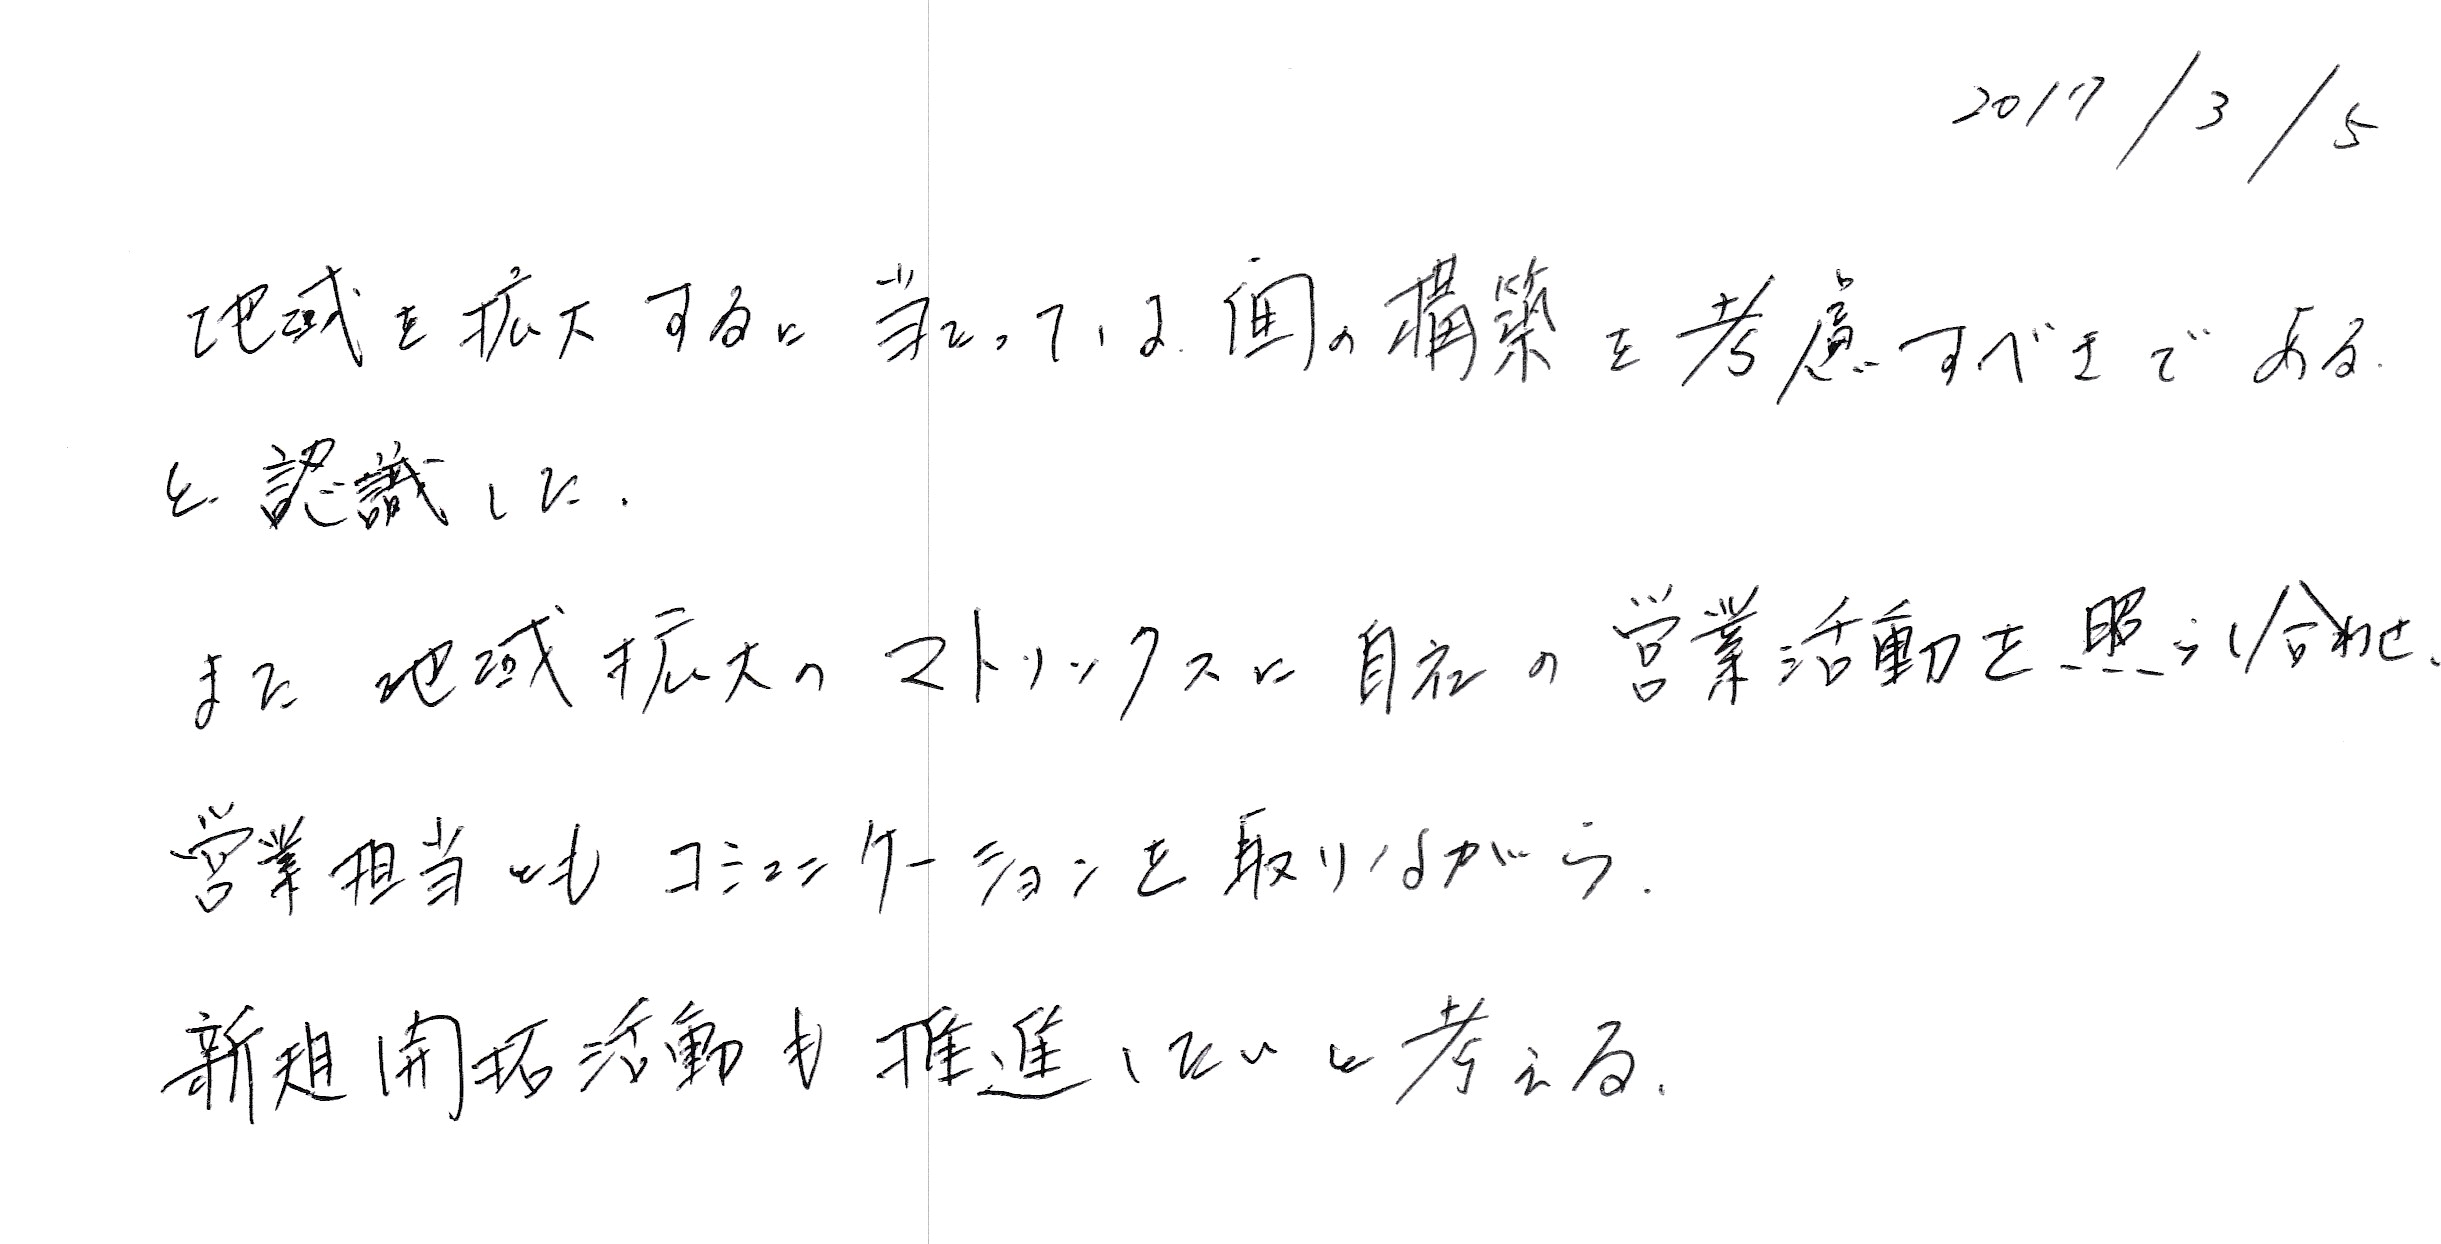 2017/3/5
地域を拡大するに当たっては、個の構築を考慮すべきである
と認識した。
また地域拡大のマトリックスに自社の営業活動を照らし合わせ、
営業担当ともコミュニケーションを取りながら、
新規開拓活動も推進したいと考える。